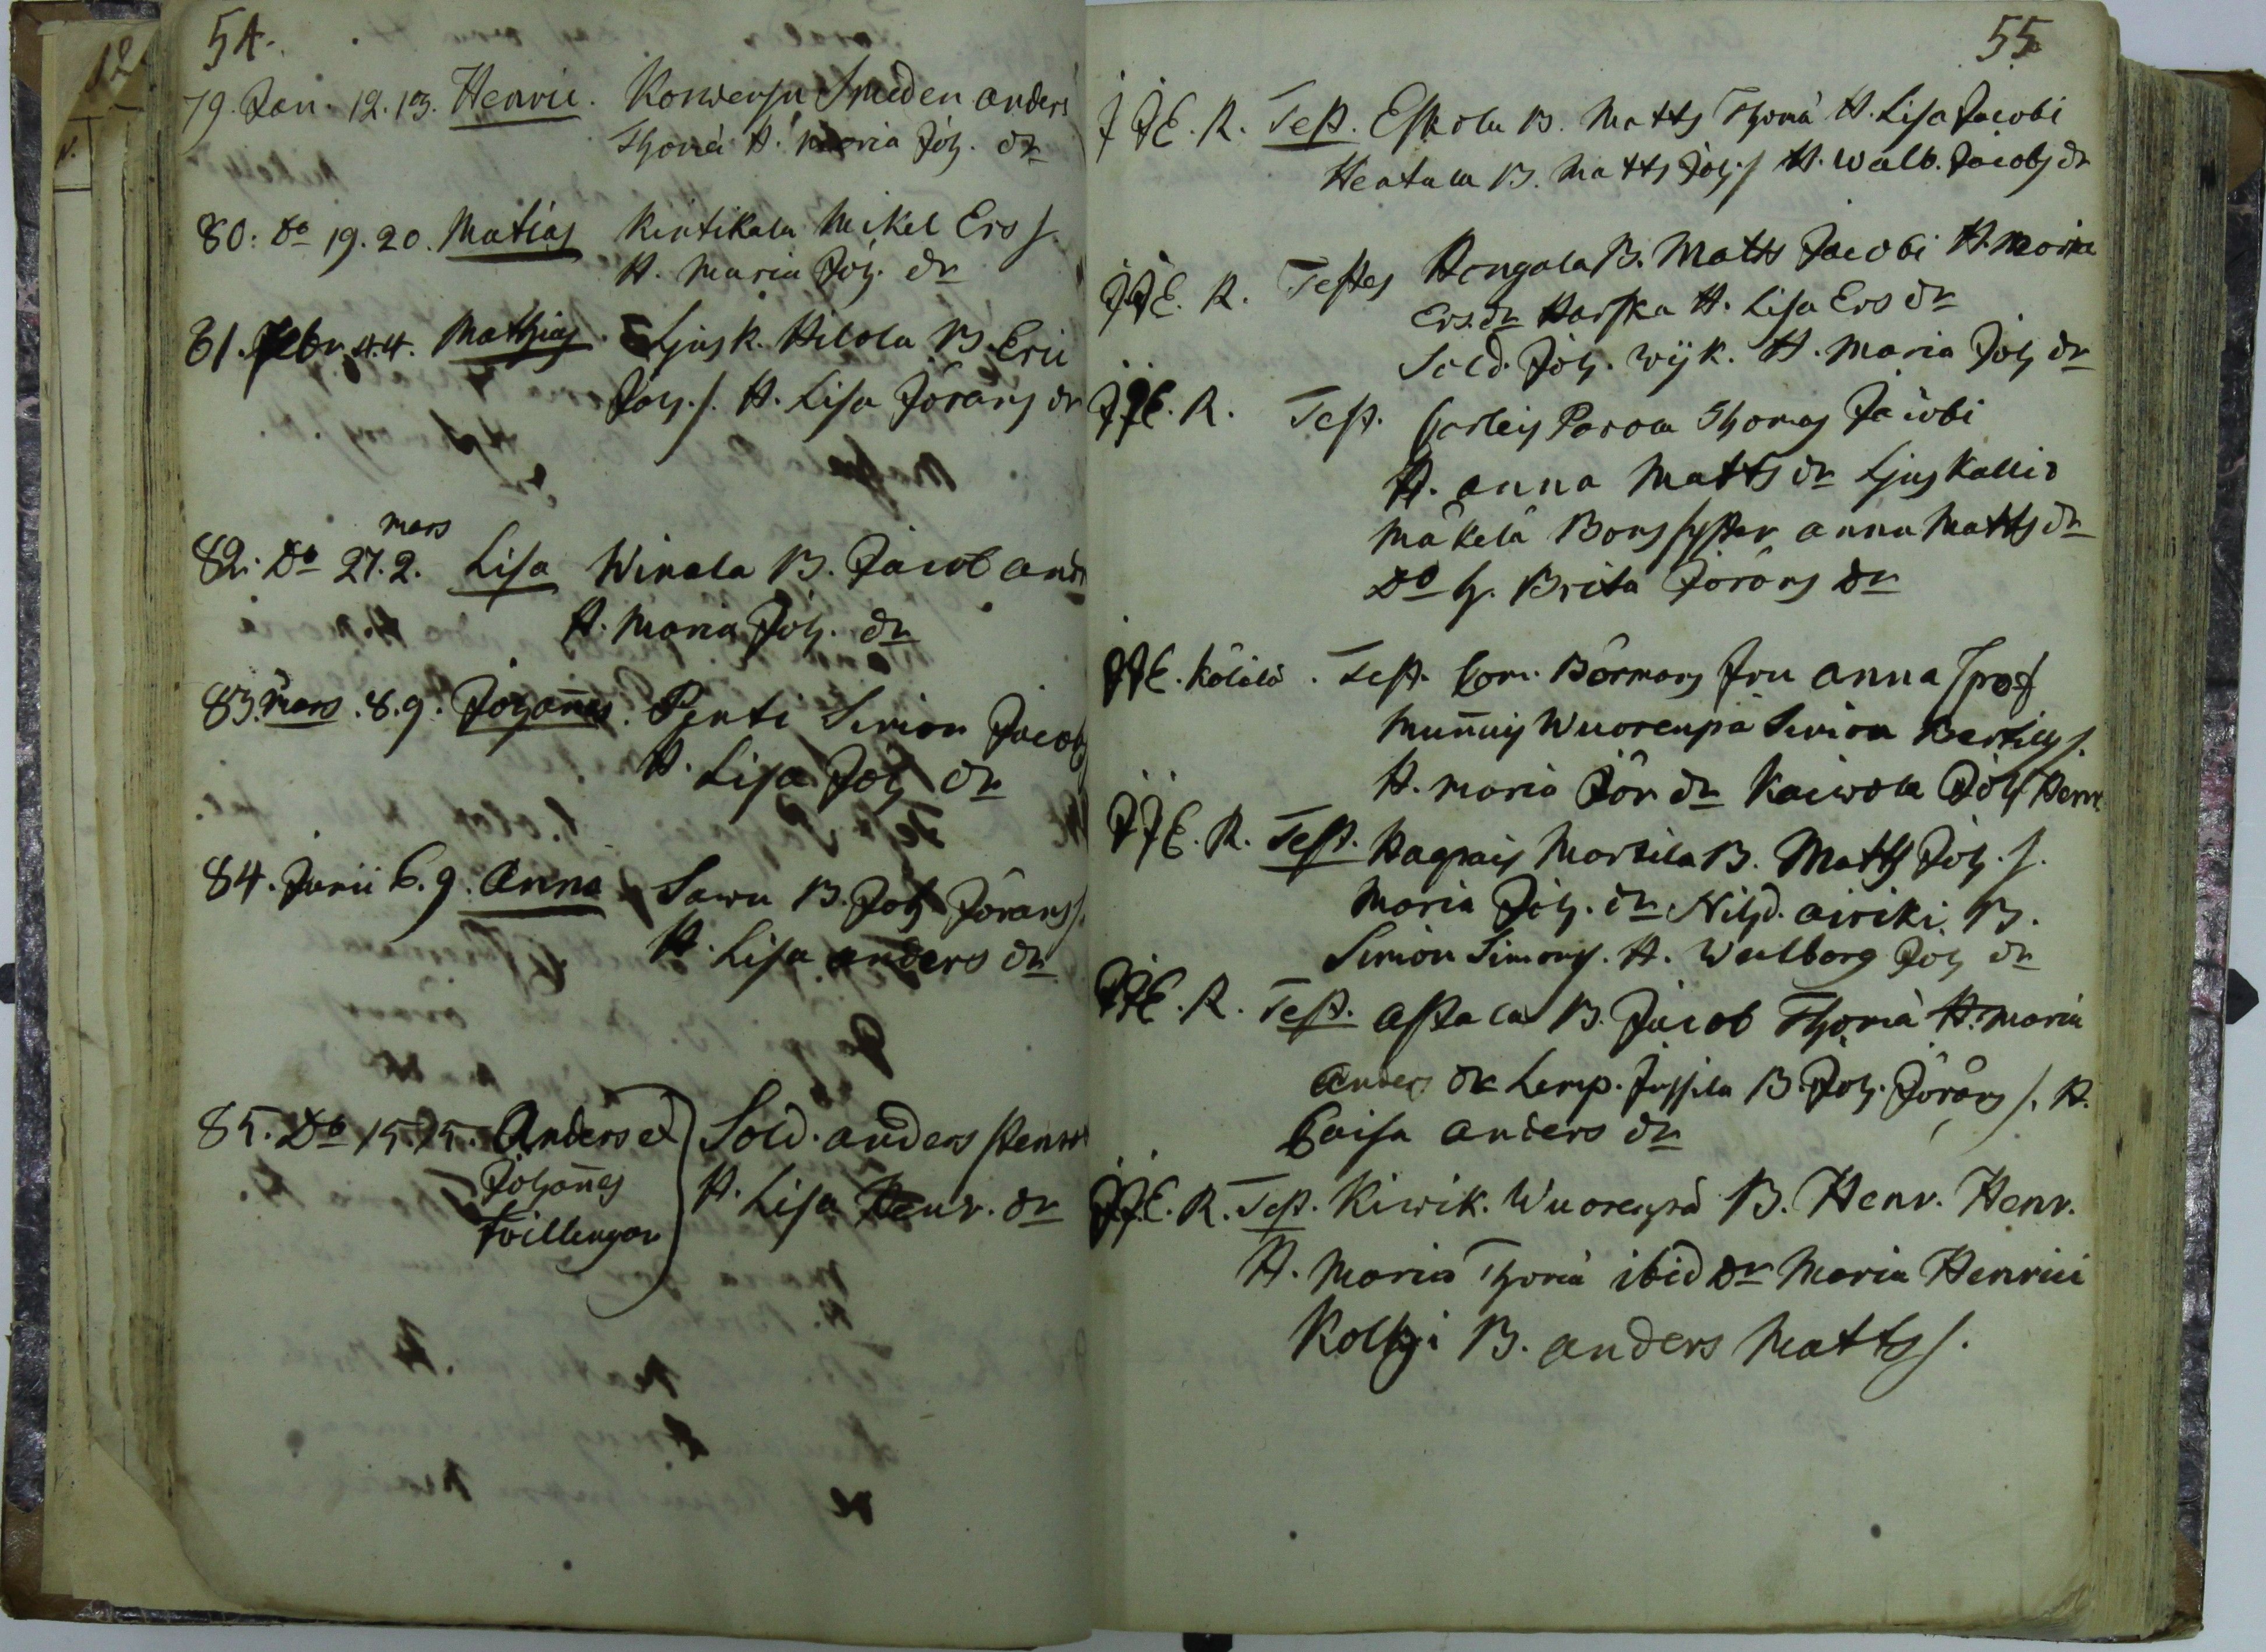 54.
79. Jan. 12. 13. Henric. Konwersu Smeden anders
Thomae H. maria Joh. dr
80. Do 19. 20. Matias Kintikala Mikel Ers s.
H. Maria Joh. dr
81. Febr. 4.4. Mathias. Ljusk. Hilola B. Eric
Joh. s. H. Lisa Jörans dr
mars
82. Do 27. 2. Lisa Winala B. Jacob and
H. Maria Joh. dr
83. mars. 8. 9. Johannes. Penti Simon Jacob
H. Lisa Joh dr
84. Junii 6. 9. Anna Sawu B. Joh Jörans s.
H. Lisa anders dr
85. Do 15. 15. Anders et Sold. anders
Johannes H. Lisa Henr. dr
twillingar
55
J J E. R. Test. Eskola B. Matts Thomae H. Lisa Jacobi
Heatala B. Matts Joh. s H. walb. Jacobs dr
J J E. R. Testes Hongola B. Matts Jacobi H. Maria
Ers. dr Harska H. Lisa Ers dr
Sold. Joh. wijk. H. Maria Joh dr
J J E. R. Test. Thomas Jacobi
H. anna Matts dr Ljus Kallio
Mäkelä Bons syster anna Matts dr
Do h. Brita Jörans dr
J J E. Kölilä. Test. Börmans Fru anna
Wuorenpä Simon Bertils s.
H. maria Jör dr Kaiwola Joh Henr.
J J E. R. Test. Hagpais Martila B. Matts Joh. s.
Maria Joh. dr airiki B.
Simon Simons. H. Walborg Joh dr
J J E. R. Test. Astala B. Jacob Thomae H. maria
Anders dr Lemp. Jussila B. Joh. Jörans s. H.
Caisa anders dr
J J E. R. Test. Kiwik. Wuorenpä B. Henr. Henr.
H. Maria Thomae ibid dr Maria Henrici
Kolsji B. anders Matts s.